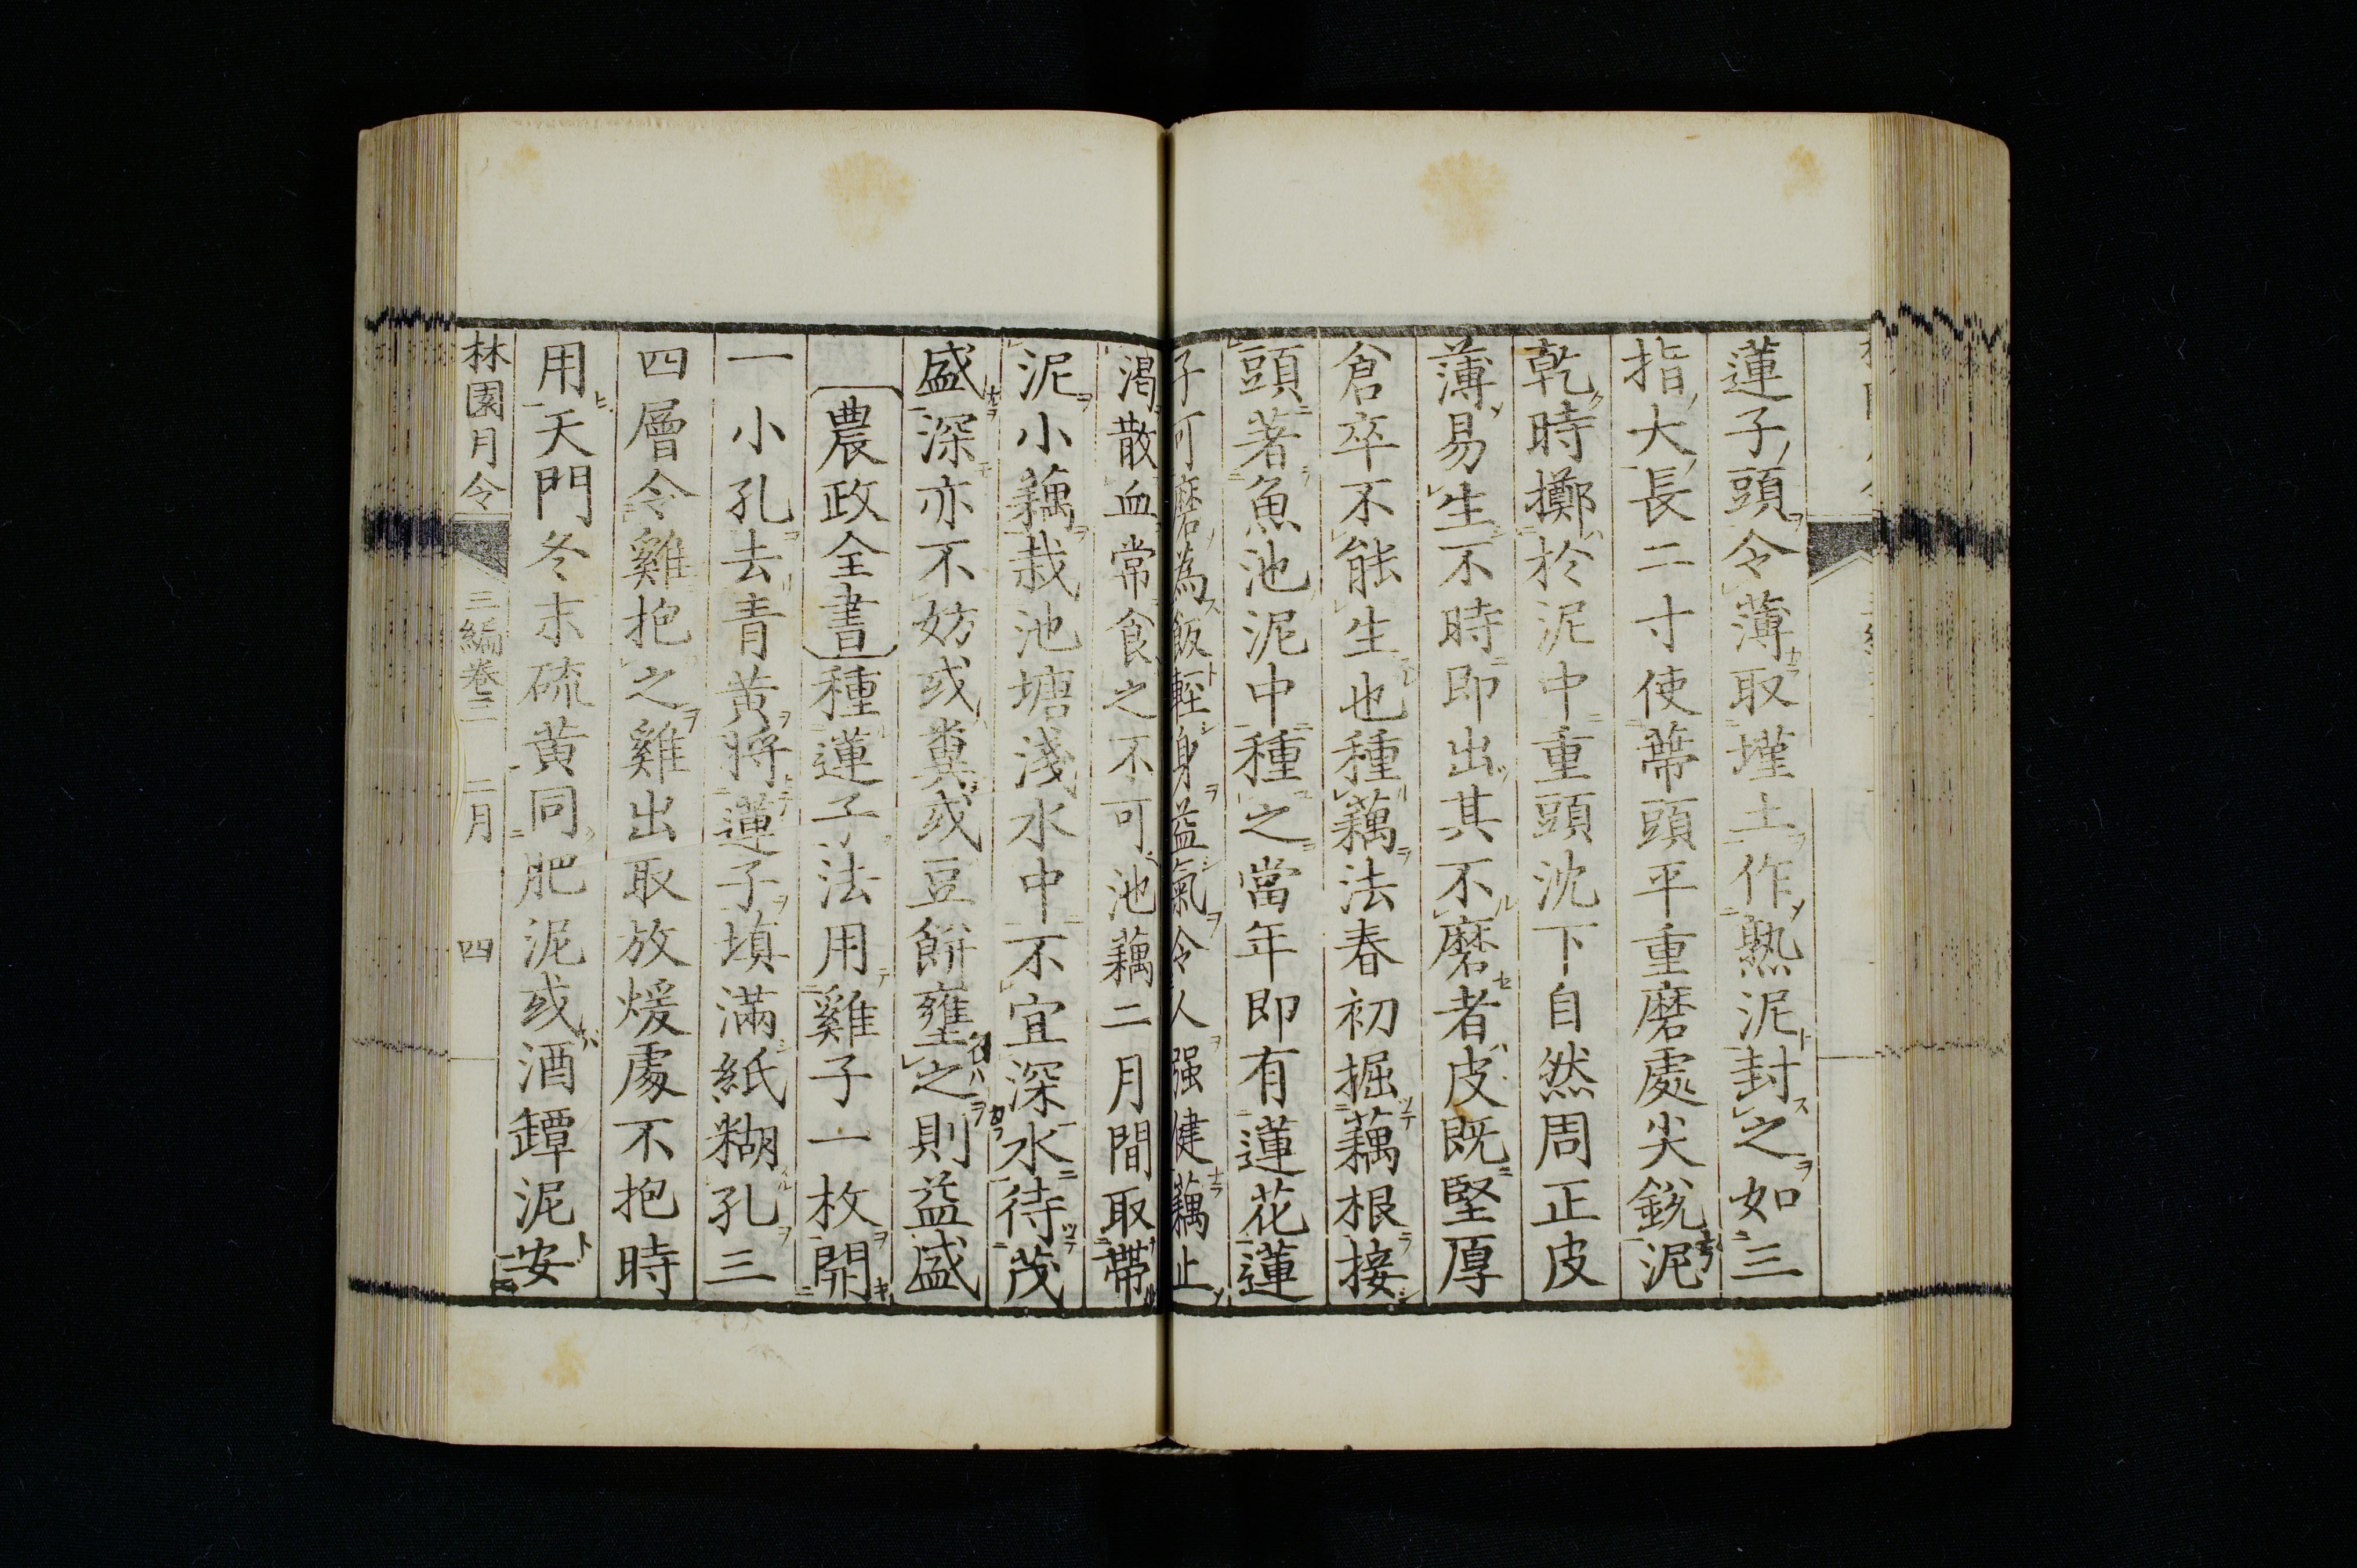 蓮子頭令薄取墐土作熟泥封之如三
指大長二寸使蔕頭平重磨處尖銳泥
乾時擲於泥中重頭沈下自然周正皮
薄易生不時即出其不磨者皮既堅厚
倉卒不能生也種藕法春初掘藕根接
頭著魚池泥中種之當年即有蓮花蓮
子可磨為飯輕身益氣令人强健藕止
渴散血常食之不可池藕二月間取帶
泥小藕栽池塘淺水中不宜深水待茂
盛深亦不妨或糞或豆餅壅之則益盛
農政全書種蓮子法用雞子一枚開
一小孔去青黄將蓮子填滿紙糊孔三
四層令雞抱之雞出取放煖處不抱時
用天門冬末硫黄同肥泥或酒罈泥安
林園月令 三編卷二 二月 四